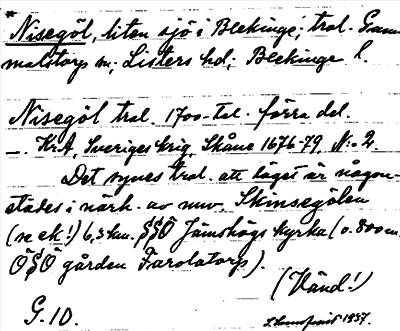 * Nisegöl, liten sjö i Blekinge; trol. Gram-
malstorps sn; Listers hd; Blekinge l.
Nisegöl trol. 1700-tal. förra del.
—. KrA, Sveriges krig, Skåne 1676-79, N:o 2.
Det synes trol. att läget är någon-
städes i närh. av nuv. Skinsegölen
(se ek!) 6,3 km. SSÖ Jämshögs kyrka (o. 800 m.
ÖSÖ gården Farolatorp).
(Vänd!)
G. 10. 1937.